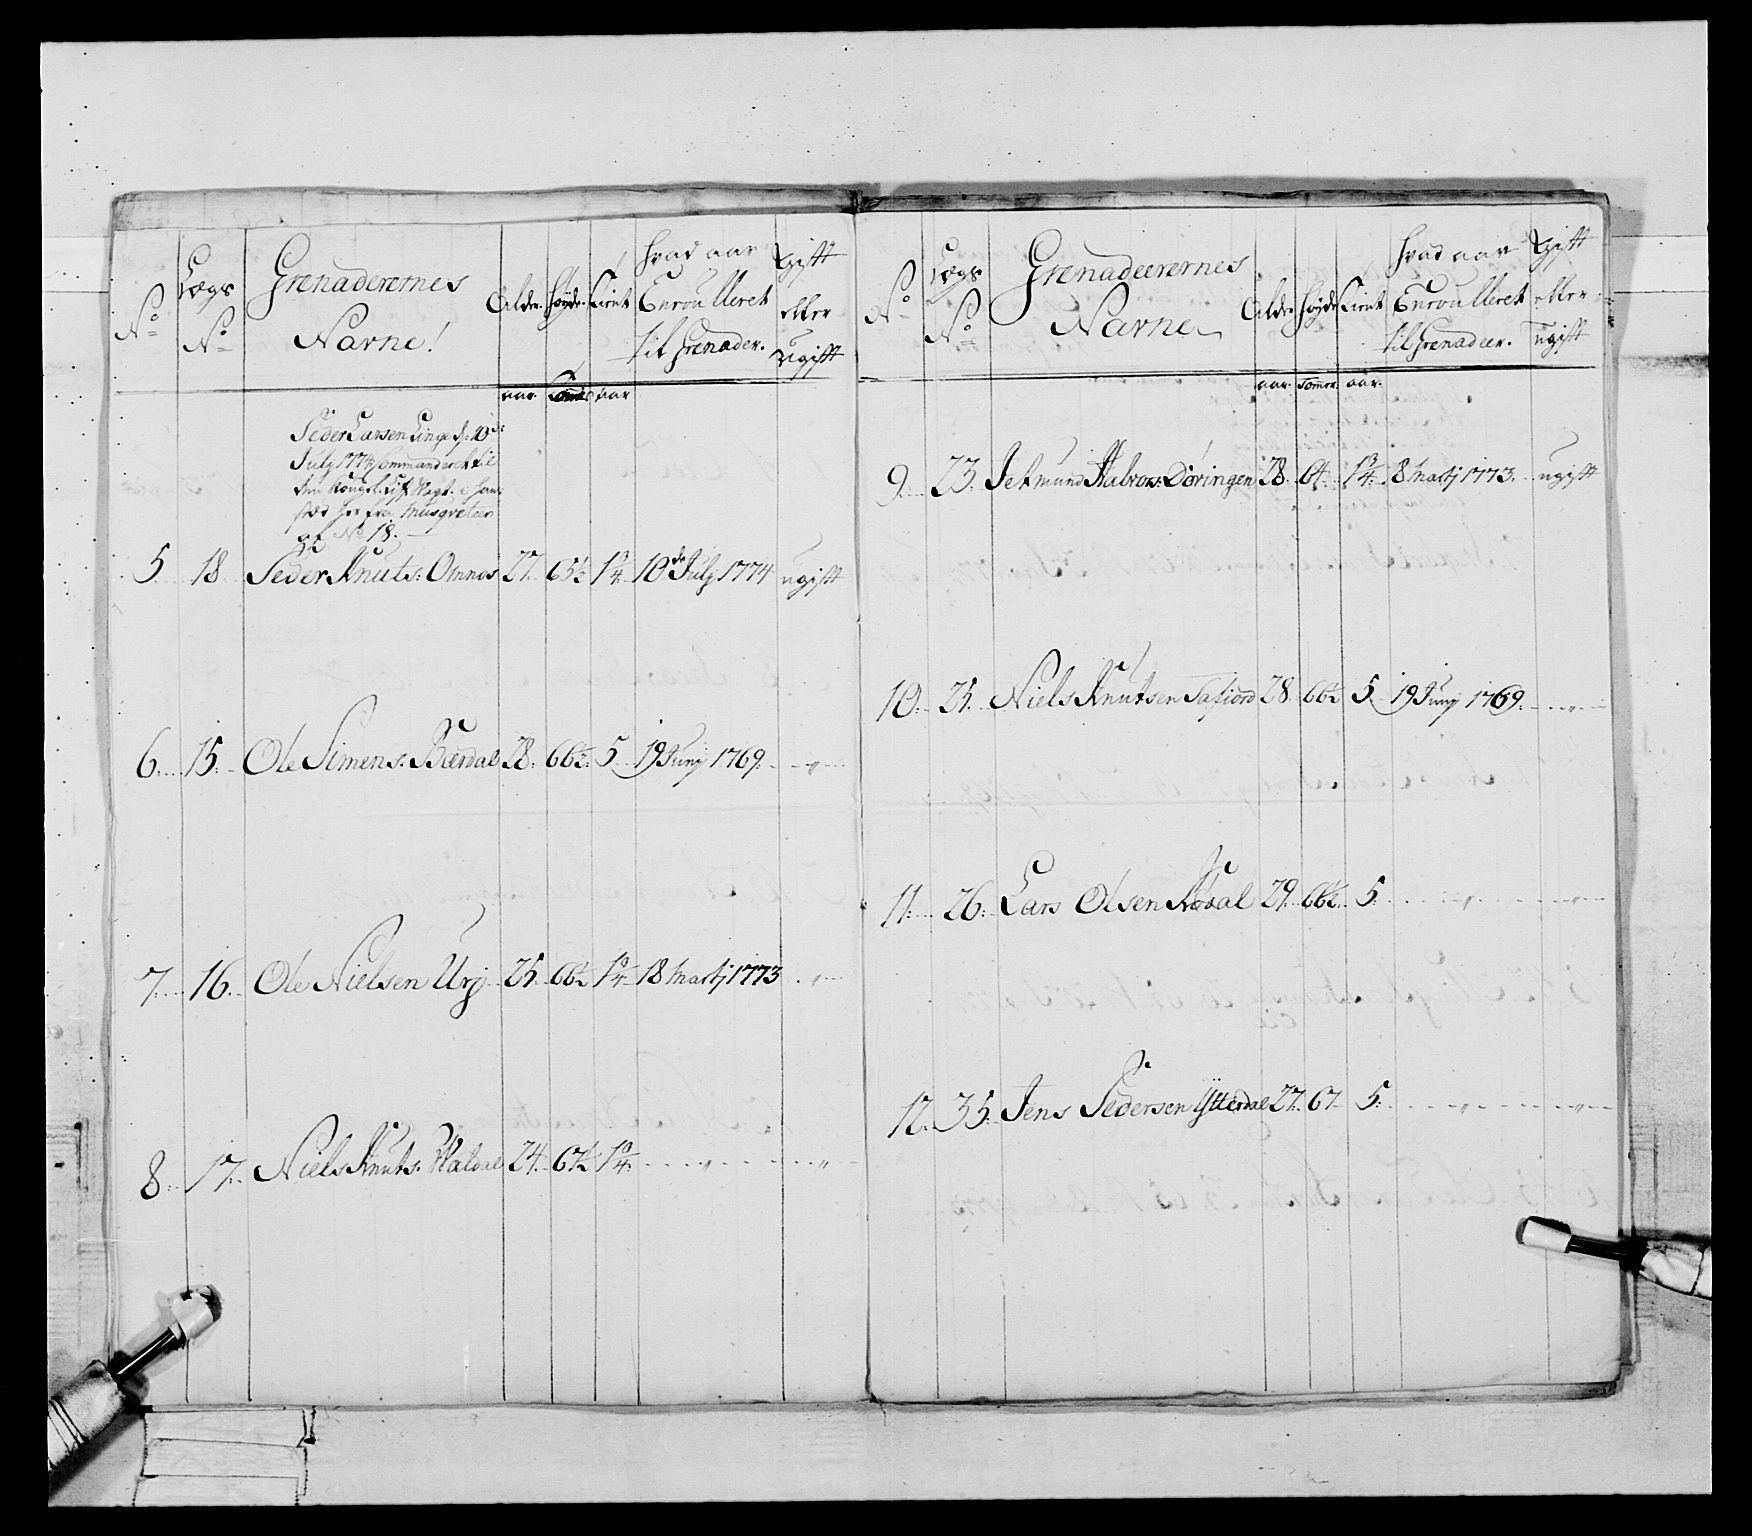 No
Lægs No
Grenaderernes Navne!
Alder
Høyde
tient
hvad aar Enroulleret til Grenader.
Gift eller ugift
aar
Tomer
aar
Peder Larsen Linge d: 10de
July 1774 Commanderet til
den Kongel: Lif Vagt. i hans
stæd her fra Musqveteer
af No 18.
5 18 Peder Knuts: Omnos 27. 65½ 1¾ 10de July 1774 ugift
6. 15. Ole Simens: Bærdal 28. 66½ 5. 19 Junij 1769. "
7. 16. Ole Nielsen Urj 25. 66½ 1¾ 18 Martj 1773 "
8. 17. Niels Knuts: Waldal 24. 67½ 1¾ " "
No
Lægs No
Grenadeerernes Navne
Alder
Høyde
tient
hvad aar Enroulleret til Grenadeer.
Gift eller ugift
aar
Tomer
aar.
9. 23. Jetmund Halvors: Döringen 28. 64. 1¾. 18 Martj 1773. ugift
10. 25. Niels Knutsen Tafiord 28. 66½ 5. 19 Junij 1769. "
11. 26. Lars Olsen 29. 66½. 5. " "
12. 35. Jens Pedersen Ytterdal 27. 67. 5. " "